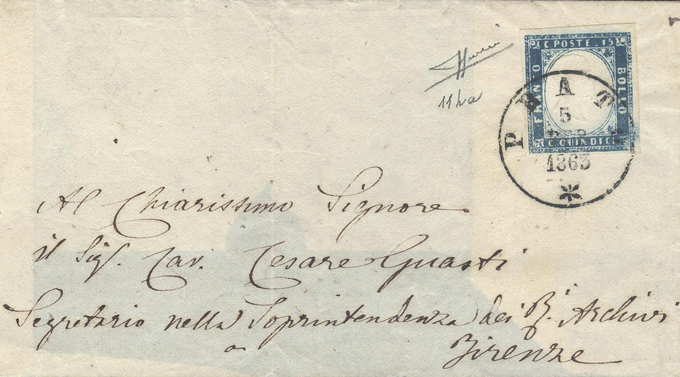 C POSTE 15
FRANCO
BOLLO
C QUINDICI
PRATO
5
1863
11ha
Al Chiarissimo Signore
il Sig. Cav. Cesare Guasti
Segretario nella Soprintendenza dei R. Archivi
a
Firenze